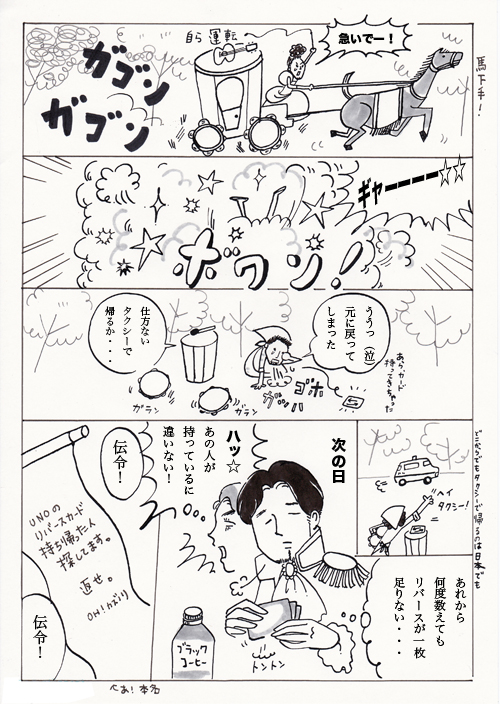 自ら運転→
急いでー!
馬下手!
ガゴン
ガゴン
ギャーーーー☆☆
ボワン!
ううっ(泣)
元に戻って
しまった
仕方ない
タクシーで
帰るか・・・
あらっカード
持ってきちゃった
ゴホ
ガッハ
ガラン
ガラン
ヘイ
タクシー!
どこからでもタクシーで帰るのは日本でも
次の日
あれから
何度数えても
リバースが一枚
足りない・・・
ハッ☆
あの人が
持っているに
違いない!
トントン
ブラック
コーヒー
伝令!
UNOの
リバースカード
持ち帰った人
探します。
返せ。
OH!カズリ
伝令!
へあ!本名